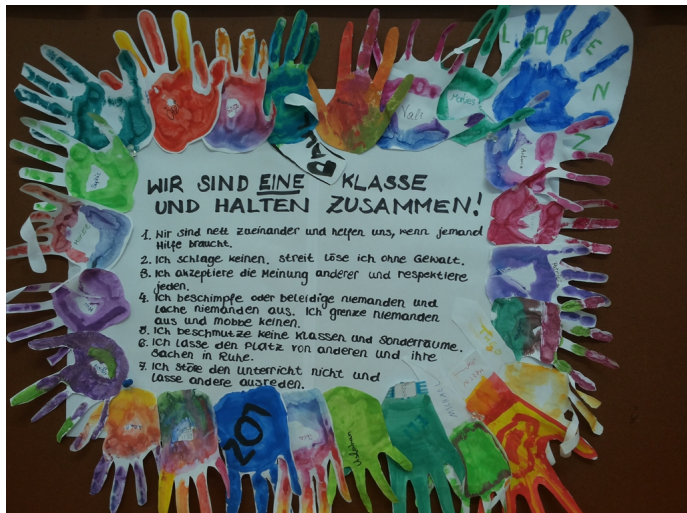 LOREN
Vali
WIR SIND EINE KLASSE
UND HALTEN ZUSAMMEN!
1. Wir sind nett zueinander und helfen uns, wenn jemand
Hilfe braucht.
2. Ich schlage keinen. Streit löse ich ohne Gewalt.
3. Ich akzeptiere die Meinung anderer und respektiere
jeden.
4. Ich beschimpfe oder beleidige niemanden und
lache niemanden aus. Ich grenze niemanden
aus und mobbe keinen.
5. Ich beschmutze keine Klassen und Sonderräume.
6. Ich lasse den Platz von anderen und ihre
Sachen in Ruhe.
7. Ich störe den Unterricht nicht und
lasse andere ausreden.